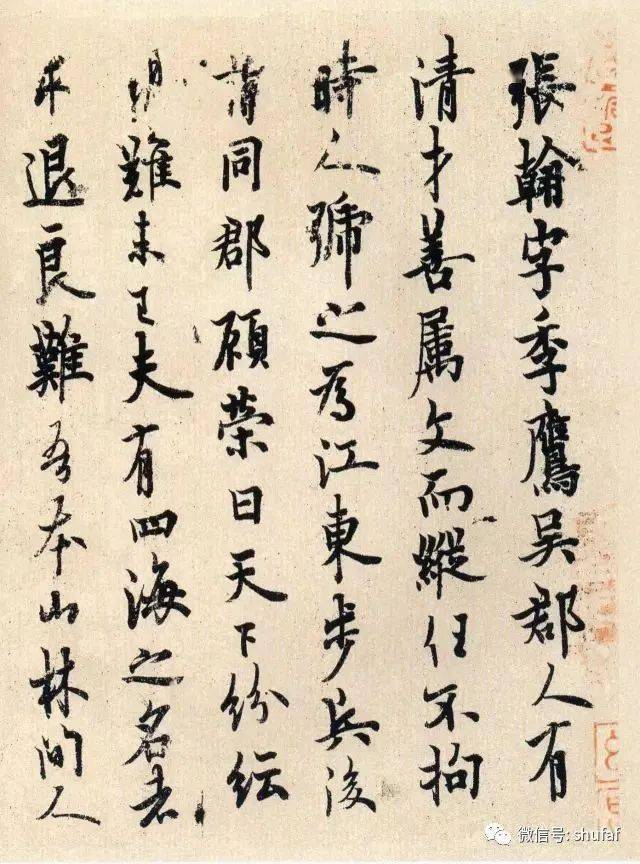 張翰字季鷹吳郡人有
清才善属文而縱任不拘
時人號之為江東步兵後
同郡顧榮曰天下紛紜
難未已夫有四海之名者
退良難吾本山林間人
微信号: shufaf